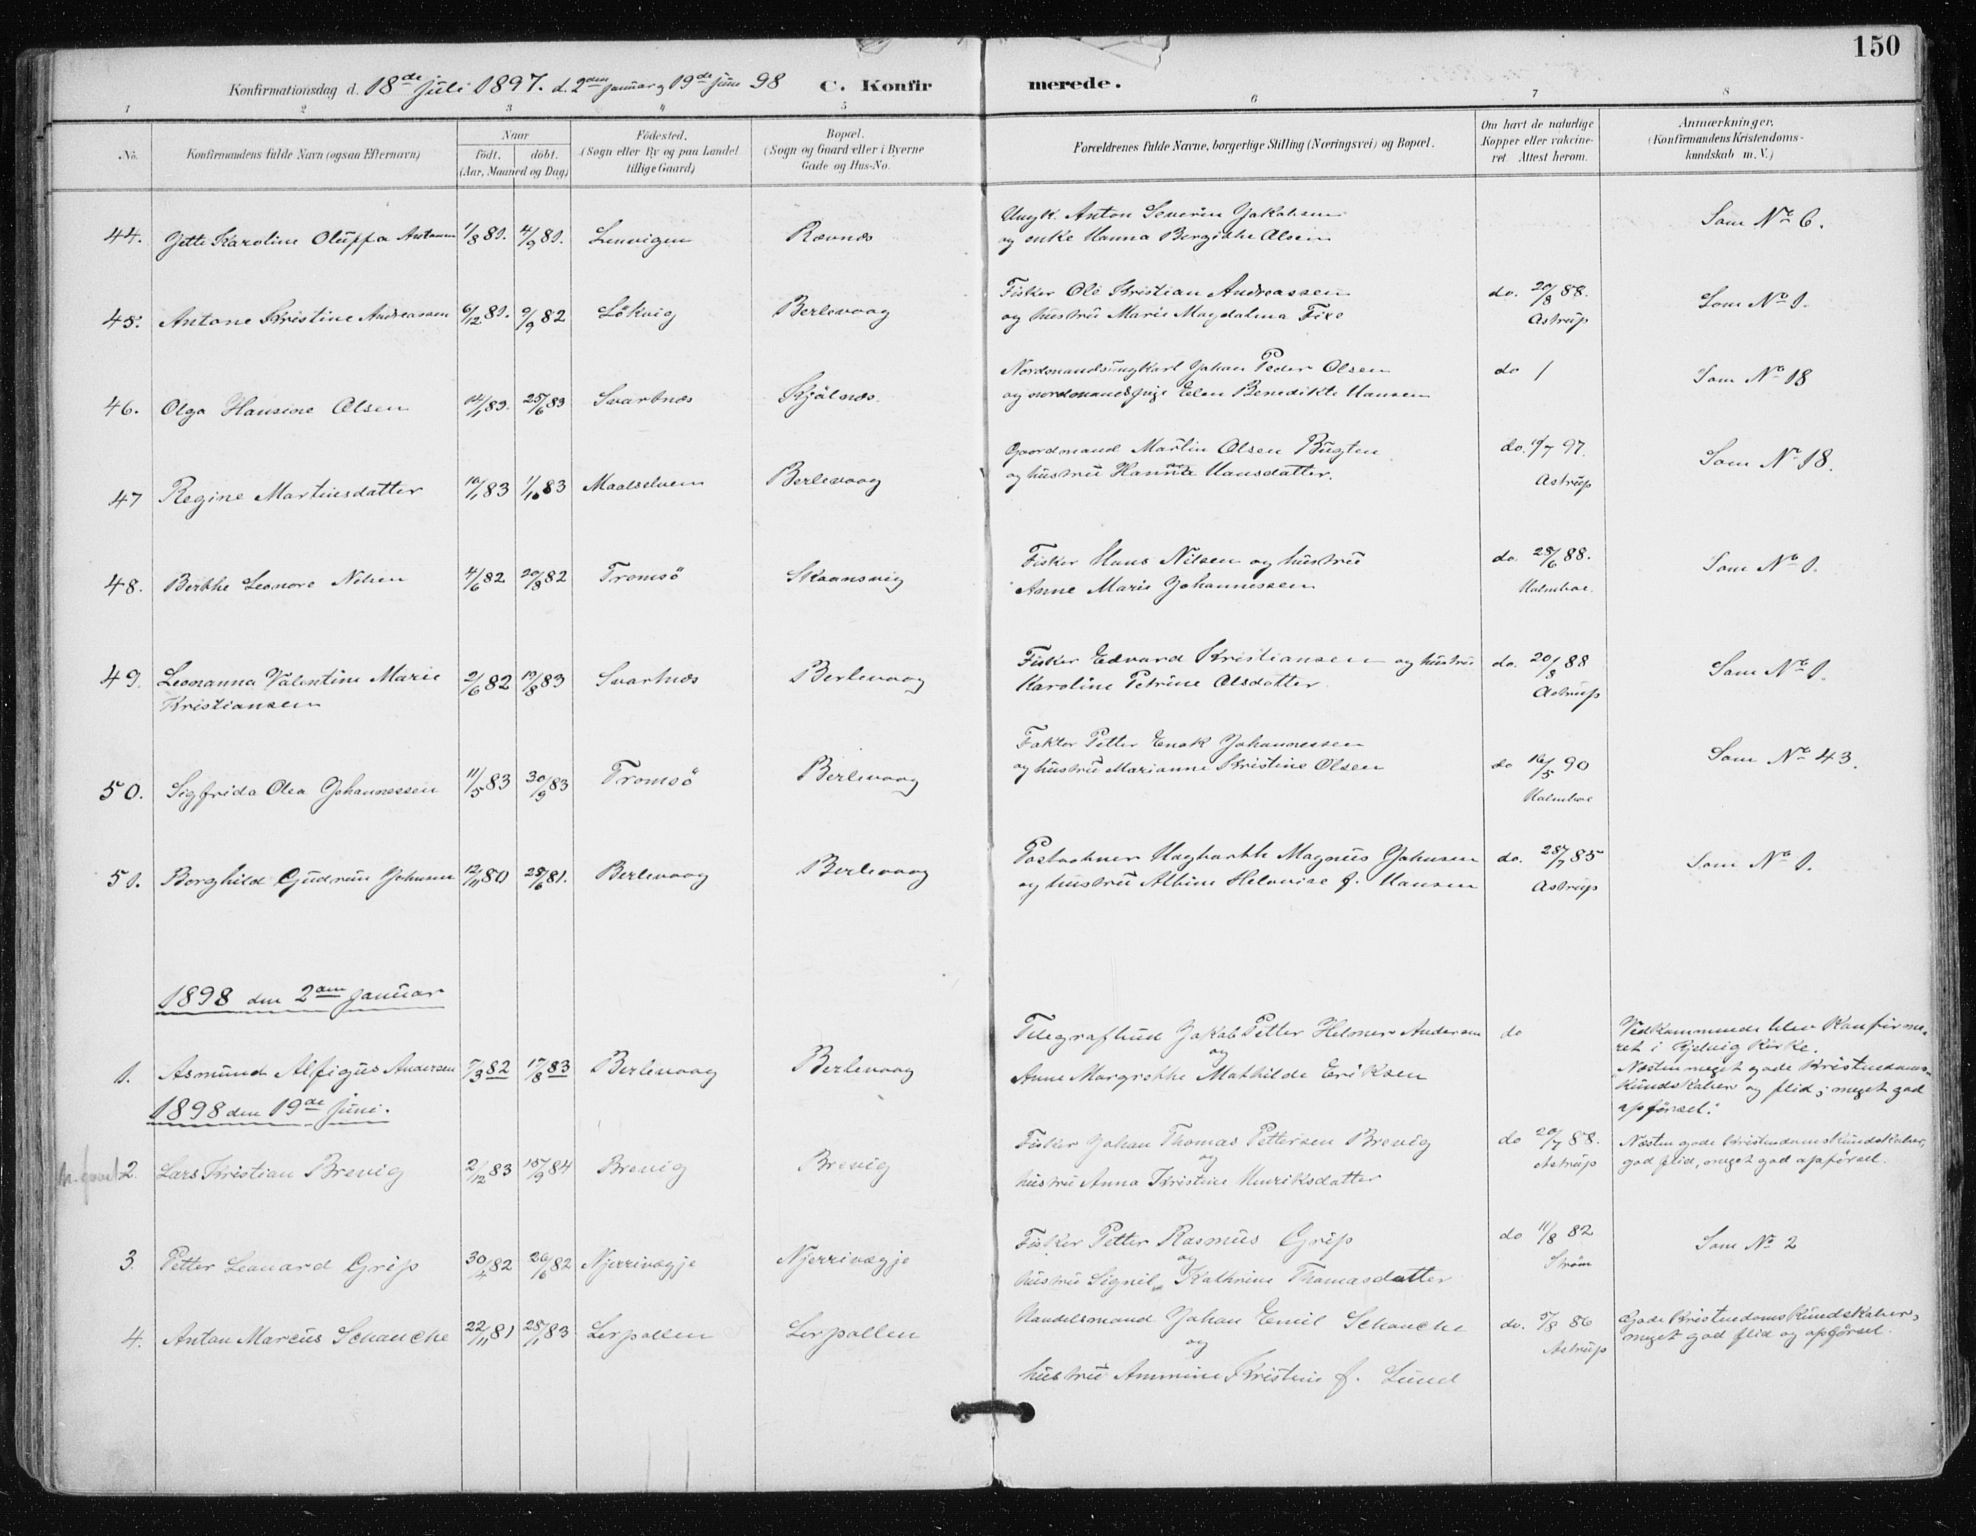 150
Konfirmationsdag d. 18de Juli 1897. d. 2den Januar og 19de Juni 98 C. Konfirmerede.
1 2 3 4 5 6 7 8
No. Konfirmandens fulde Navn (ogsaa Efternavn)
Naar født. døbt. (Aar, Maaned og Dag)
Fødested. (Sogn eller By og paa Landet tillige Gaard)
Bopæl. (Sogn og Gaard eller i Byerne Gade og Hus-No.
Forældrenes fulde Navne, borgerlige Stilling (Næringsvei) og Bopæl.
Om havt de naturlige Kopper eller vakcineret. Attest herom.
Anmærkninger. (Konfirmandens Kristendomskundskab m. V.)
Ungk. Anton Severin Jakobsen
44. Jette Karoline Oluffa Antonsen 1/8 81. 4/9 81. Lenvigen Rævnæs
og enke Hanna Bergitthe Olsen Som No 6.
Fisker Ole Kristian Andreassen do. 20/8 88.
45. Antone Kristine Andreassen 6/12 81. 9/9 82 Lökvig Berlevaag
og hustru Marie Magdalena Fixe Astrup Som No 1.
Nordmandsungkarl Johan Peder Olsen do /
46. Olga Hansine Olsen 14/1 83. 25/6 83 Svartnæs Kjölnæs.
og nordmandspige Elen Benedikte Hansen Som No 18
Gaardmand Martin Olsen Bugten do. 19/7 97.
47 Regine Martinsdatter 10/1 83 1/10 83 Maalselven Berlevaag
og hustru Hanna Hansdatter. Astrup Som No 18.
Fisker Hans Nilsen og hustru do. 28/6 88.
48. Birthe Leonore Nilsen 4/6 82 20/8 82 Tromsö Skaansvig
Anne Marie Johannessen Holmboe. Som No 1.
Fisker Edvard Kristiansen og hustru do. 20/8 88
49. Leonanna Valentine Marie 2/6 82 19/8 83 Svartnæs Berlevaag
Kristiansen
Karoline Petrine Olsdatter Astrup Som No 1.
Faktor Petter Enok Johannessen
50. Sigfrida Olea Johannessen 11/5 83 30/9 83 Tromsö Berlevaag
og hustru Marianne Kristine Olsen do 16/5 90 Holmboe Som No 43.
Postaabner Hagbarth Magnus Johnsen do. 28/7 85
51. Borghild Gudrun Johnsen 12/11 80 28/6 81. Berlevaag Berlevaag
og hustru Albine Helovise f. Hansen Astrup Som No 1.
1898 den 2den Januar
Telegrafbud Jakob Petter Helmer Andersen do
og
1. Asmund Alfigus Andersen 7/3 82 17/8 83 Berlevaag Berlevaag
Anne Margrethe Mathilde Eriksen
Vedkommende blev konfirmeret i Kjelvig Kirke.
Næsten meget gode Kristendomskundskaber og flid; meget god opførsel.
1898 den 19de Juni.
Fisker Johan Thomas Pettersen Brevig do 20/7 88.
og
2. Lars Kristian Brevig 2/12 83 15/9 84 Brevig Brevig
hustru Anna Kristine Henriksdatter Astrup
Næsten gode Kristendomskundskaber,
god flid, meget god opførsel.
Fisker Petter Rasmus Grip do 11/8 82
og
3. Petter Leonard Grip 30/4 82 26/6 82 Njerrivagje Njerrivagje
hustru Signil Kathrine Thomasdatter Strøm Som No 2
Handelsmand Johan Emil Schanche do. 5/8 86
og
4. Anton Marcus Schanche 22/11 81 28/1 83 Lerpollen Lerpollen
hustru Ammine Kristine f. Lund Astrup
Gode Kristendomskundskaber,
meget god flid og opførsel.